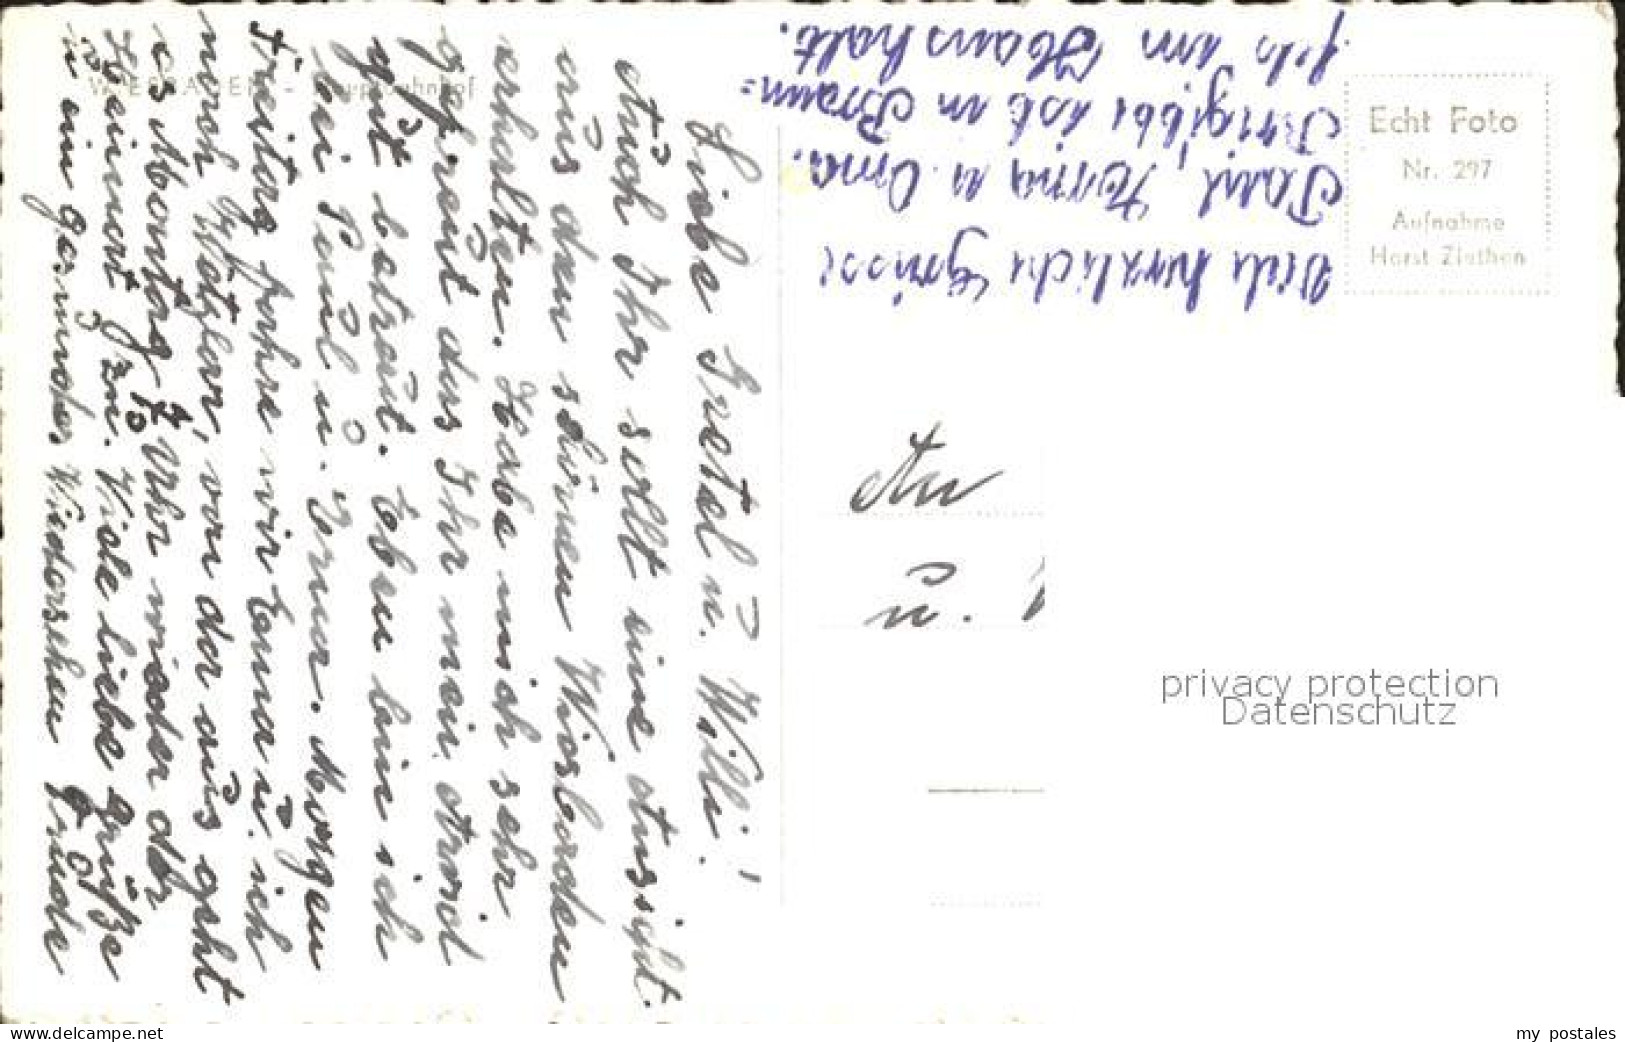 WIESBADEN - Hauptbahnhof
Liebe Gretel u. Willi!
Auch Ihr sollt eine Ansicht
aus dem schönen Wiesbaden
erhalten. Habe mich sehr
gefreut das Ihr mein
gut betreut. Eben bin ich
bei Paul u. Erna. Morgen
Freitag fahre wir Emma u. ich
nach Wetzlar, von da aus geht
es Montag 7 Uhr wieder der
Heimat zu. Viele liebe Grüße
u. ein gesundes Wiedersehen Trude
Viele herzliche Grüsse
Paul, Erna u. Oma.
Brigitte ist in Braun=
fels im Haushalt.
Echt Foto
Nr. 297
Aufnahme
Horst Ziethen
An
u.
privacy protection
Datenschutz
www.delcampe.net
my_postales